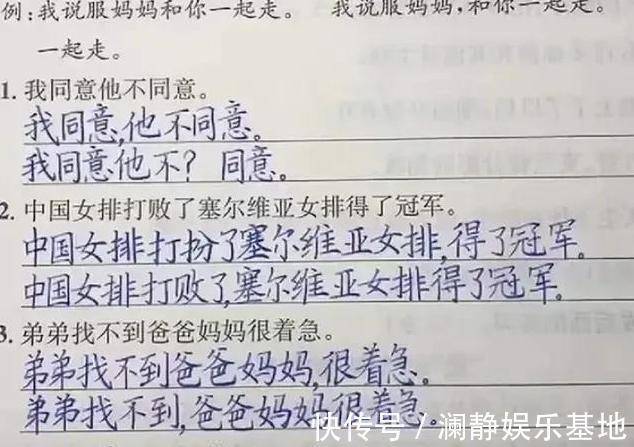 例:我说服妈妈和你一起走。 我说服妈妈,和你一起走。
一起走。
1. 我同意他不同意。
我同意,他不同意。
我同意他不? 同意。
2. 中国女排打败了塞尔维亚女排得了冠军。
中国女排打扮了塞尔维亚女排,得了冠军。
中国女排打败了,塞尔维亚女排得了冠军。
3. 弟弟找不到爸爸妈妈很着急。
弟弟找不到爸爸妈妈,很着急。
弟弟找不到,爸爸妈妈很着急。
快传号 / 澜静娱乐基地